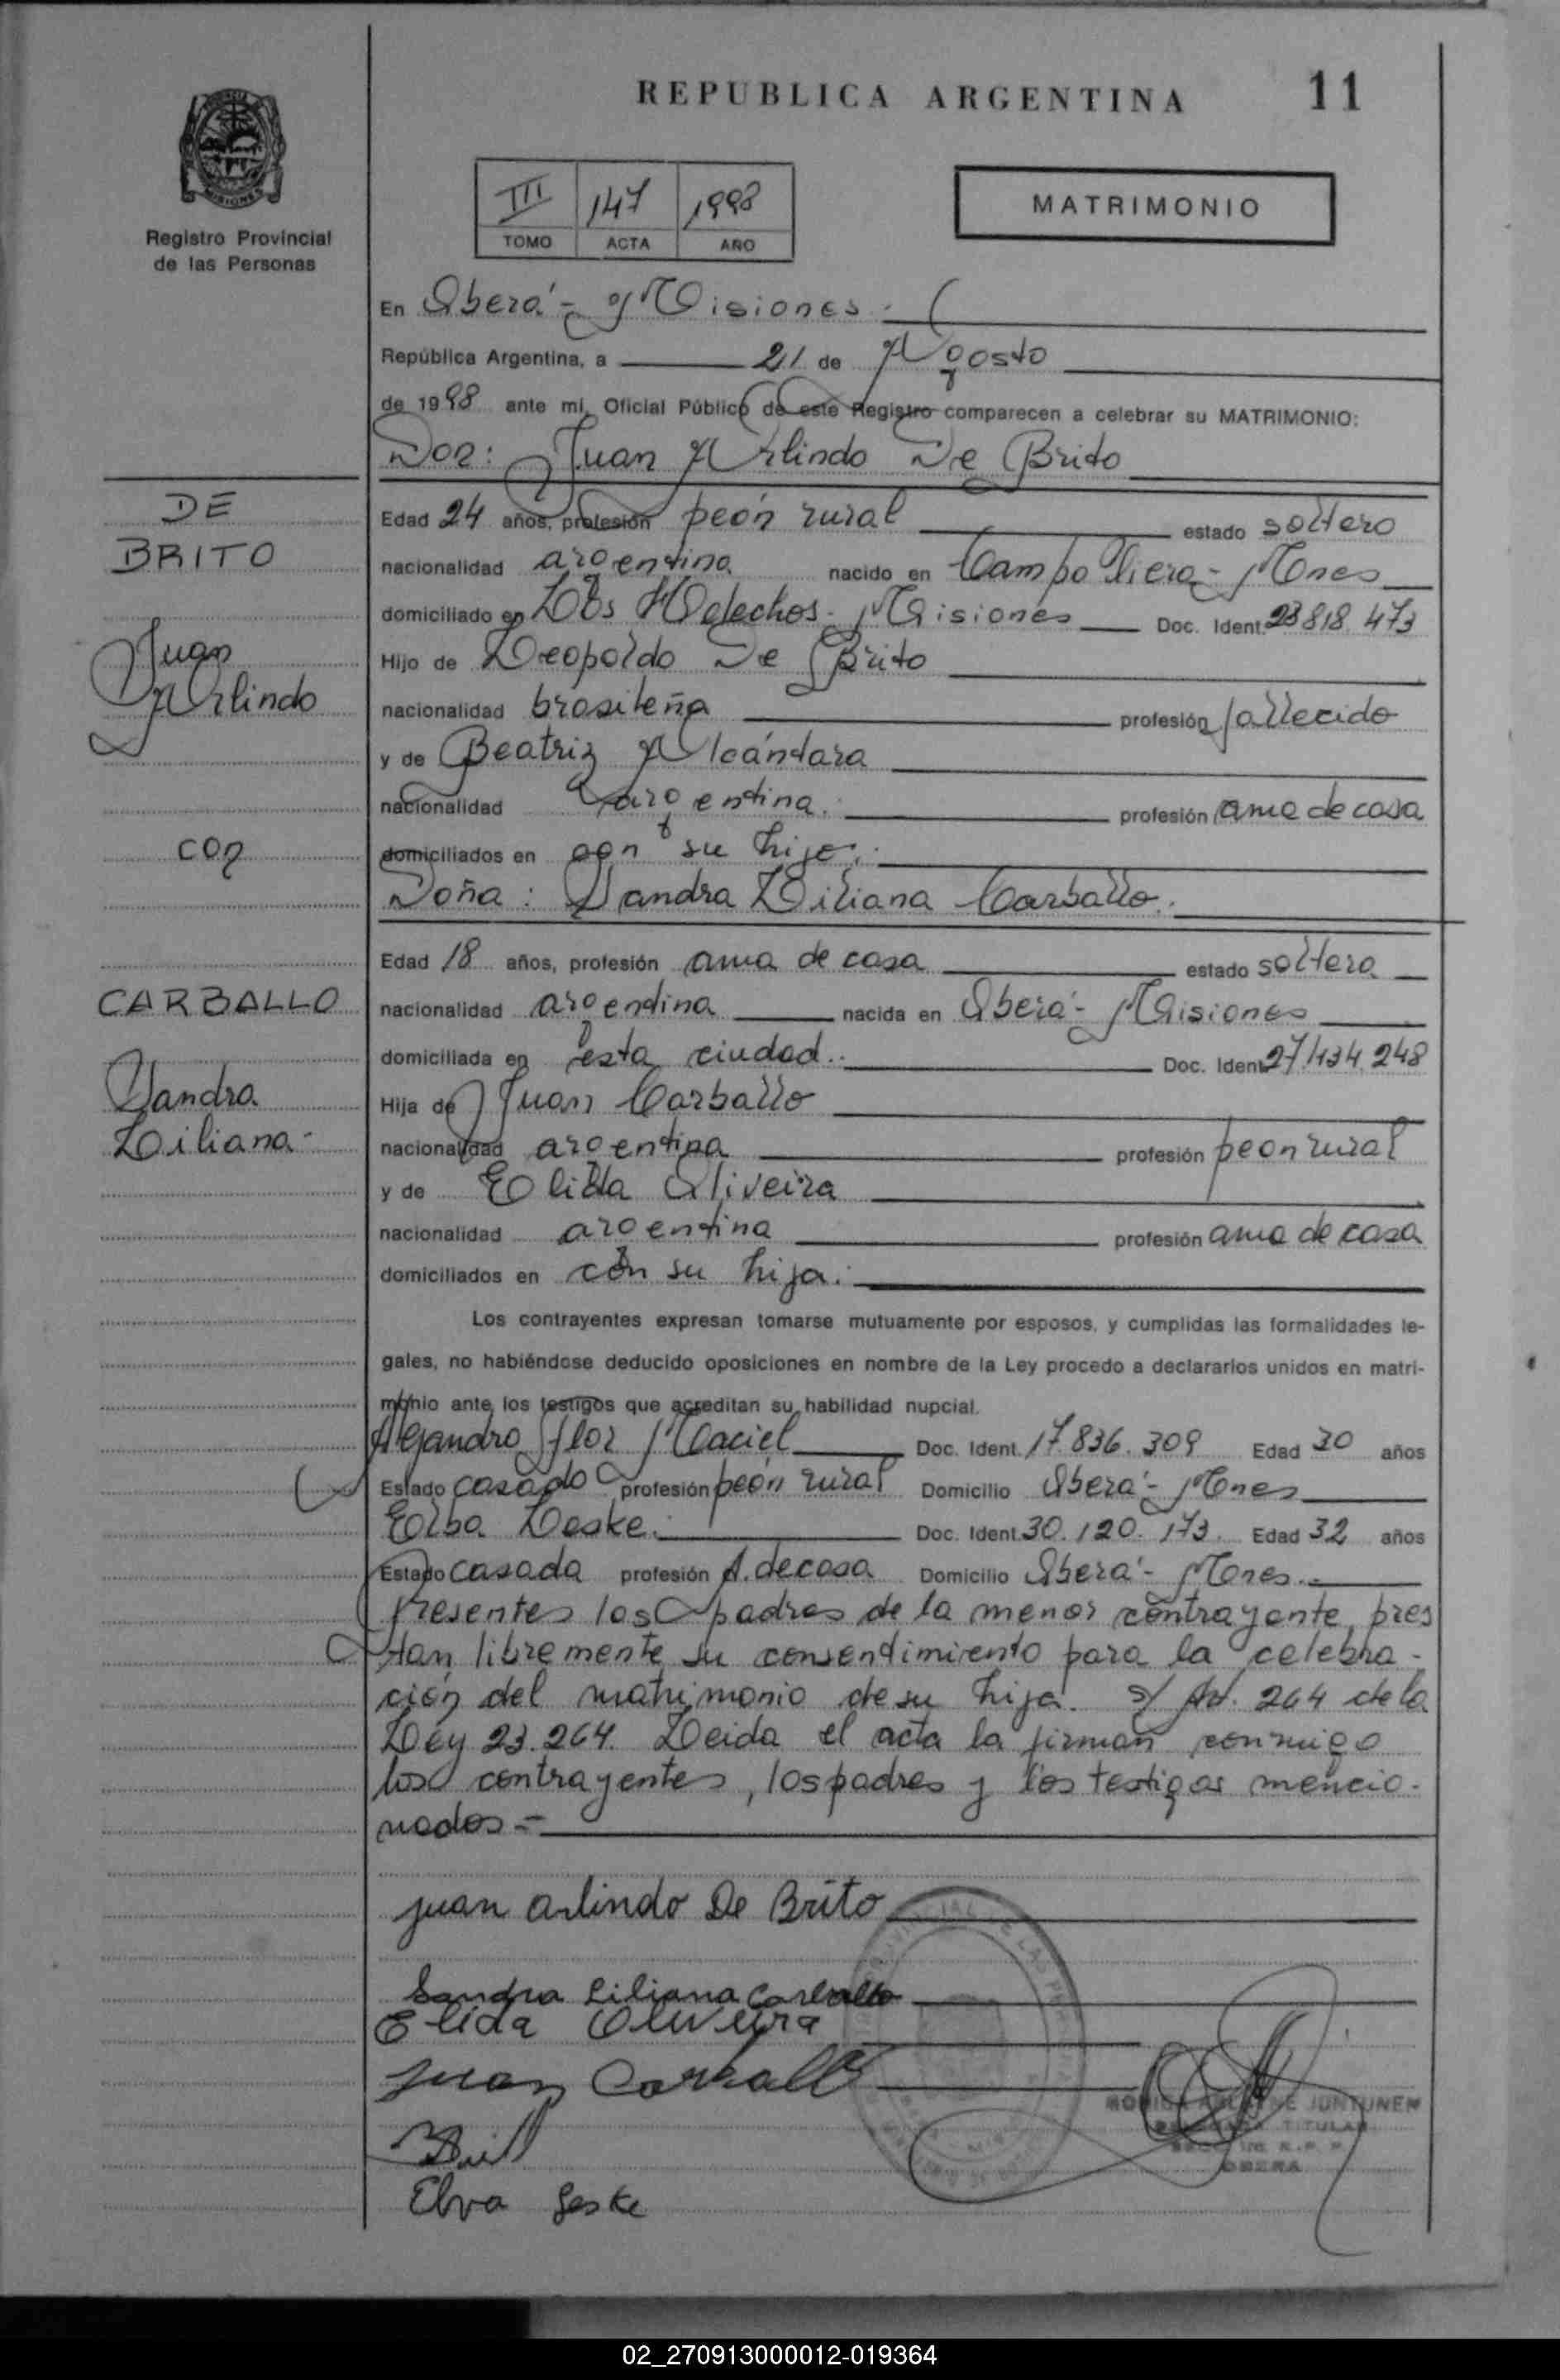 REPUBLICA ARGENTINA 11
MISIONES
Registro Provincial
de las Personas
III 147 1998
TOMO ACTA AÑO
MATRIMONIO
En Oberá - Misiones.
República Argentina, a 21 de Agosto
de 1998 ante mi, Oficial Público de este Registro comparecen a celebrar su MATRIMONIO:
Don: Juan Arlindo De Brito
DE
BRITO
Juan
Arlindo
con
CARBALLO
Sandra
Liliana-
Edad 24 años, profesión peón rural estado soltero
nacionalidad argentina nacido en Campo Viera - Mnes
domiciliado en Los Helechos - Misiones Doc. Ident. 23 818 473
Hijo de Leopoldo De Brito
nacionalidad brasileña profesión fallecido
y de Beatriz Alcántara
nacionalidad argentina. profesión ama de casa
domiciliados en con su hijo.
Doña: Sandra Liliana Carballo.
Edad 18 años, profesión ama de casa estado soltera
nacionalidad argentina nacida en Oberá - Misiones
domiciliada en esta ciudad. Doc. Ident. 27.434.248
Hija de Juan Carballo
nacionalidad argentina profesión peon rural
y de Elida Oliveira
nacionalidad argentina profesión ama de casa
domiciliados en con su hija.
Los contrayentes expresan tomarse mutuamente por esposos, y cumplidas las formalidades le-
gales, no habiéndose deducido oposiciones en nombre de la Ley procedo a declararlos unidos en matri-
monio ante los testigos que acreditan su habilidad nupcial.
Alejandro Flor Maciel Doc. Ident. 17.836.309 Edad 30 años
Estado casado profesión peón rural Domicilio Oberá - Mnes
Elba Leske. Doc. Ident. 30.120.173. Edad 32 años
Estado casada profesión A. de casa Domicilio Oberá - Mnes.
Presentes los padres de la menor contrayente, pres
tan libremente su consentimiento para la celebra-
ción del matrimonio de su hija. s/ Art. 264 de la
Ley 23.264. Leida el acta la firman conmigo
los contrayentes, los padres y los testigos mencio-
nados =
juan arlindo De Brito
Sandra Liliana Carballo
Elida Oliveira
Juan Carballo
Elva Leske
JUNTUNEN
TITULAR
OBERA
02_270913000012-019364